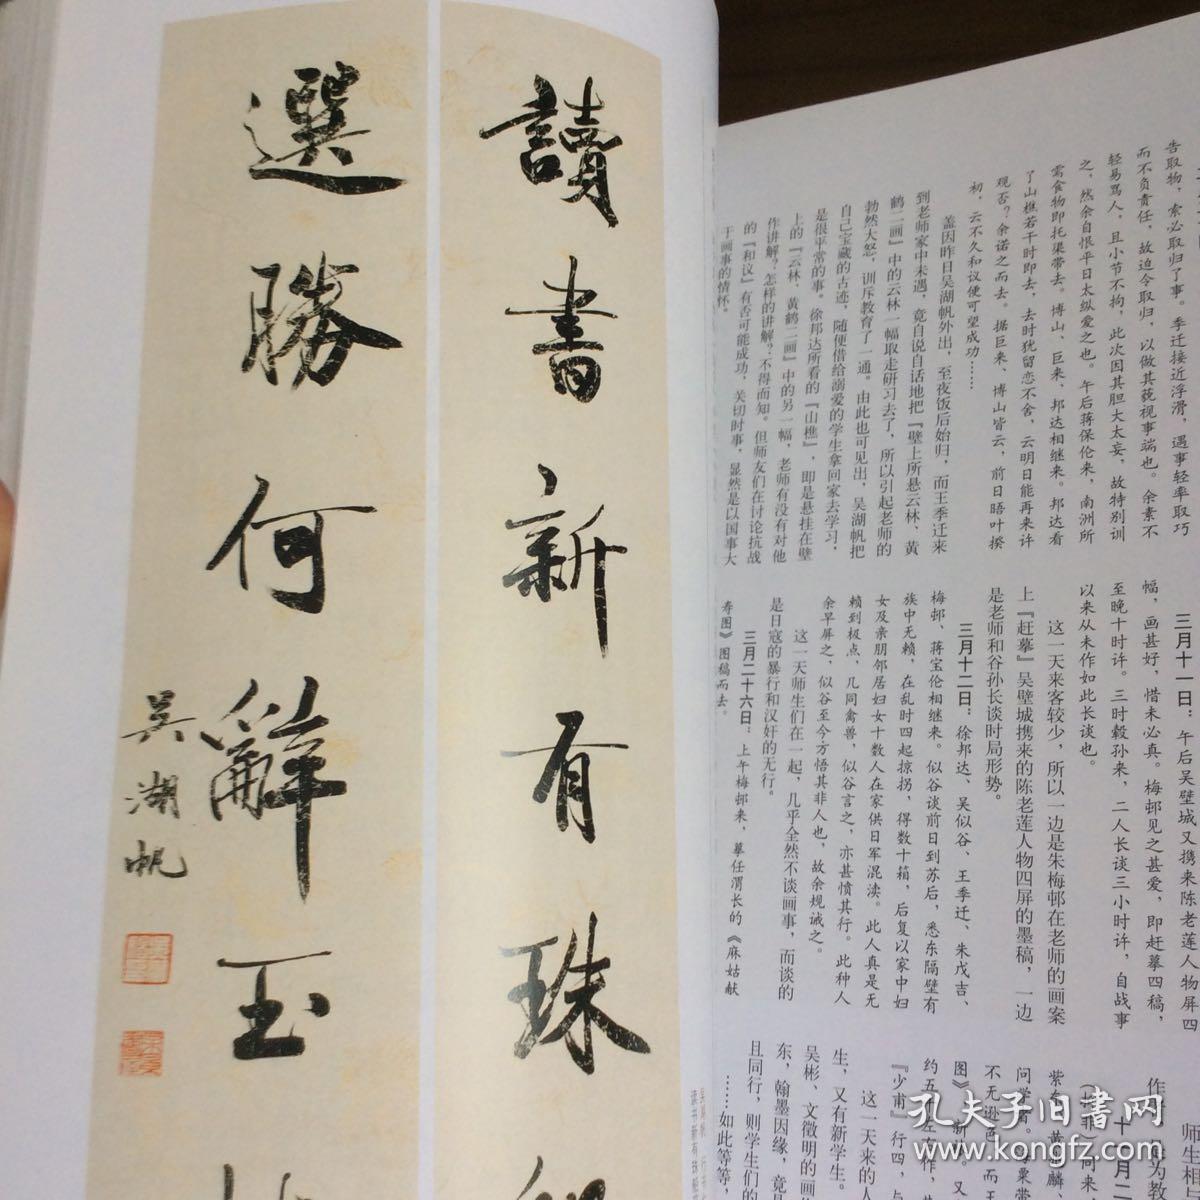 讀書新有珠
選勝何辭玉
吳湖帆
告取物，索必取归了事。季迁接近浮滑，遇事轻率取巧
而不负责任，故迫令取归，以儆其藐视事端也。余素不
轻易骂人，且小节不拘，此次因其胆大太妄，故特别训
之，然余自恨平日太纵爱之也。午后蒋保伦来，南洲所
需食物即托渠带去。博山、巨来、邦达相继来。邦达看
了山樵若干时即去，去时犹留恋不舍，云明日能再来许
观否？余诺之而去。据巨来、博山皆云，前日晤叶揆
初，云不久和议便可望成功……
盖因昨日吴湖帆外出，至夜饭后始归，而王季迁来
到老师家中未遇，竟自说自话地把『壁上所悬云林、黄
鹤二画』中的云林一幅取走研习去了，所以引起老师的
勃然大怒，训斥教育了一通。由此也可见出，吴湖帆把
自己宝藏的古迹，随便借给溺爱的学生拿回家去学习，
是很平常的事。徐邦达所看的『山樵』，即是悬挂在壁
上的『云林、黄鹤二画』中的另一幅，老师有没有对他
作讲解？怎样的讲解？不得而知。但师友们在讨论抗战
的『和议』有否可能成功，关切时事，显然是以国事大
于画事的情怀。
三月十一日：午后吴壁城又携来陈老莲人物屏四
幅，画甚好，惜未必真。梅邨见之甚爱，即赶摹四稿，
至晚十时许。三时毂孙来，二人长谈三小时许，自战事
以来从未作如此长谈也。
这一天来客较少，所以一边是朱梅邨在老师的画案
上『赶摹』吴壁城携来的陈老莲人物四屏的墨稿，一边
是老师和谷孙长谈时局形势。
三月十二日：徐邦达、吴似谷、王季迁、朱戊吉、
梅邨、蒋宝伦相继来。似谷谈前日到苏后，悉东隔壁有
族中无赖，在乱时四起掠拐，得数十箱，后复以家中妇
女及亲朋邻居妇女十数人在家供日军混渎。此人真是无
赖到极点，几同禽兽，似谷言之，亦甚愤其行。此种人
余早屏之，似谷至今方悟其非人也，故余规诫之。
这一天师生们在一起，几乎全然不谈画事，而谈的
是日寇的暴行和汉奸的无行。
三月二十六日：上午梅邨来，摹任渭长的《麻姑献
寿图》图稿而去。
师生相
作
生，又有新学生。
这一天来的人
吴彬、文徵明的画
东，翰墨因缘，竟是
且同行，则学生们的
……如此等等，
孔夫子旧书网
www.kongfz.com